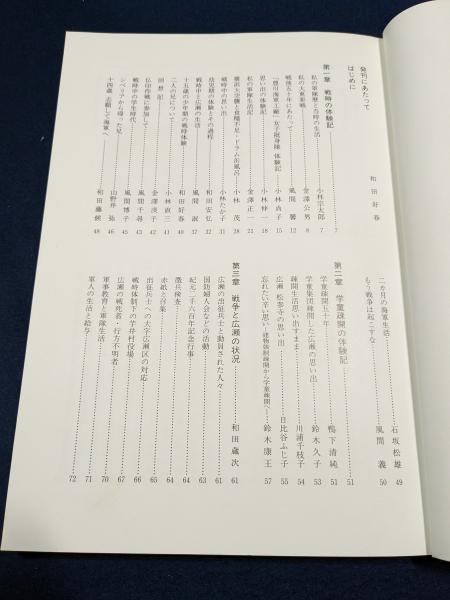 発刊にあたって
はじめに 和田好春
第一章 戦時の体験記 7
私の軍隊歴と当時の生活 小林宗太郎 7
私の大東亜戦 金澤公男 8
戦後五十年にあたって 風間馨 12
「豊川海軍工廠」女子挺身隊 体験記 小林貞子 15
思い出の体験記 小林悼一 18
私の軍隊生活記 金澤正一 21
横浜大空襲と食糧不足・ドラム缶風呂 小林茂 28
戦時中の思い出 小林たか子 31
幼児期の体験とその過程 和田安弘 32
戦時中と広瀬の生活 風間淑 37
十五歳の少年期の戦時体験 和田好春 40
二人の兄について 小林直三 41
回想記 金澤淡子 42
仏印作戦に参加して 風間千尋 43
戦時中の学生時代 風間博子 45
シベリアから帰った兄 山野井弥 46
十四歳 志願して海軍へ 和田藤候 48
二カ月の海軍生活 石坂松雄 49
もう戦争は起こすな 風間義 50
第二章 学童疎開の体験記 51
学童疎開五十年 鴨下清純 51
学童集団疎開した広瀬の思い出 鈴木久子 53
疎開生活思い出すまま 川浦千枝子 54
広瀬 松泰寺の思い出 日比谷ふじ子 55
忘れたい辛い思い―建物強制疎開から学童疎開へ― 鈴木康王 57
第三章 戦争と広瀬の状況 和田蔵次 61
広瀬の出征兵士と動員された人々 61
国防婦人会などの活動 63
紀元二千六百年記念行事 64
徴兵検査 64
赤紙と召集 65
出征兵士への大字広瀬区の対応 66
戦時体制下の芋井村役場 67
広瀬の戦死者・行方不明者 69
軍事教育と軍隊生活 70
軍人の生活と給与 71
72